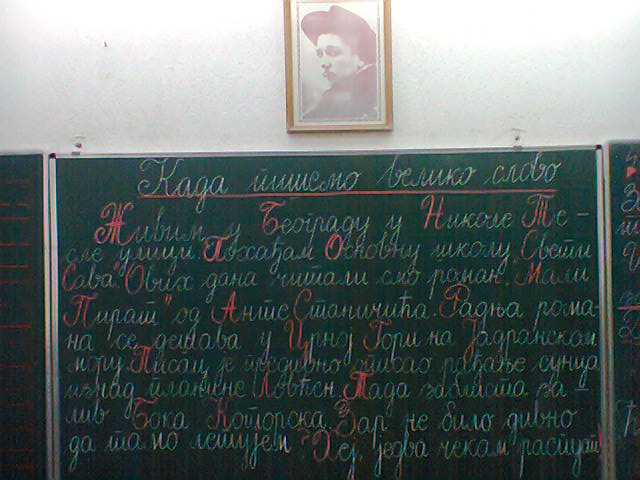 Када пишемо велико слово
Живим у Београду у Николе Те-
сле улици. Похађам Основну школу „Свети
Сава". Ових дана читали смо роман „Мали
Пират" од Анте Станичића. Радња рома-
на се дешава у Црној Гори на Јадранском
мору. Писац је предивно описао рађање сунца
изнад планине Ловћен. Тада заблиста за-
лив Бока Которска. Зар не би било дивно
да тамо летујем? Хеј, једва чекам распуст!